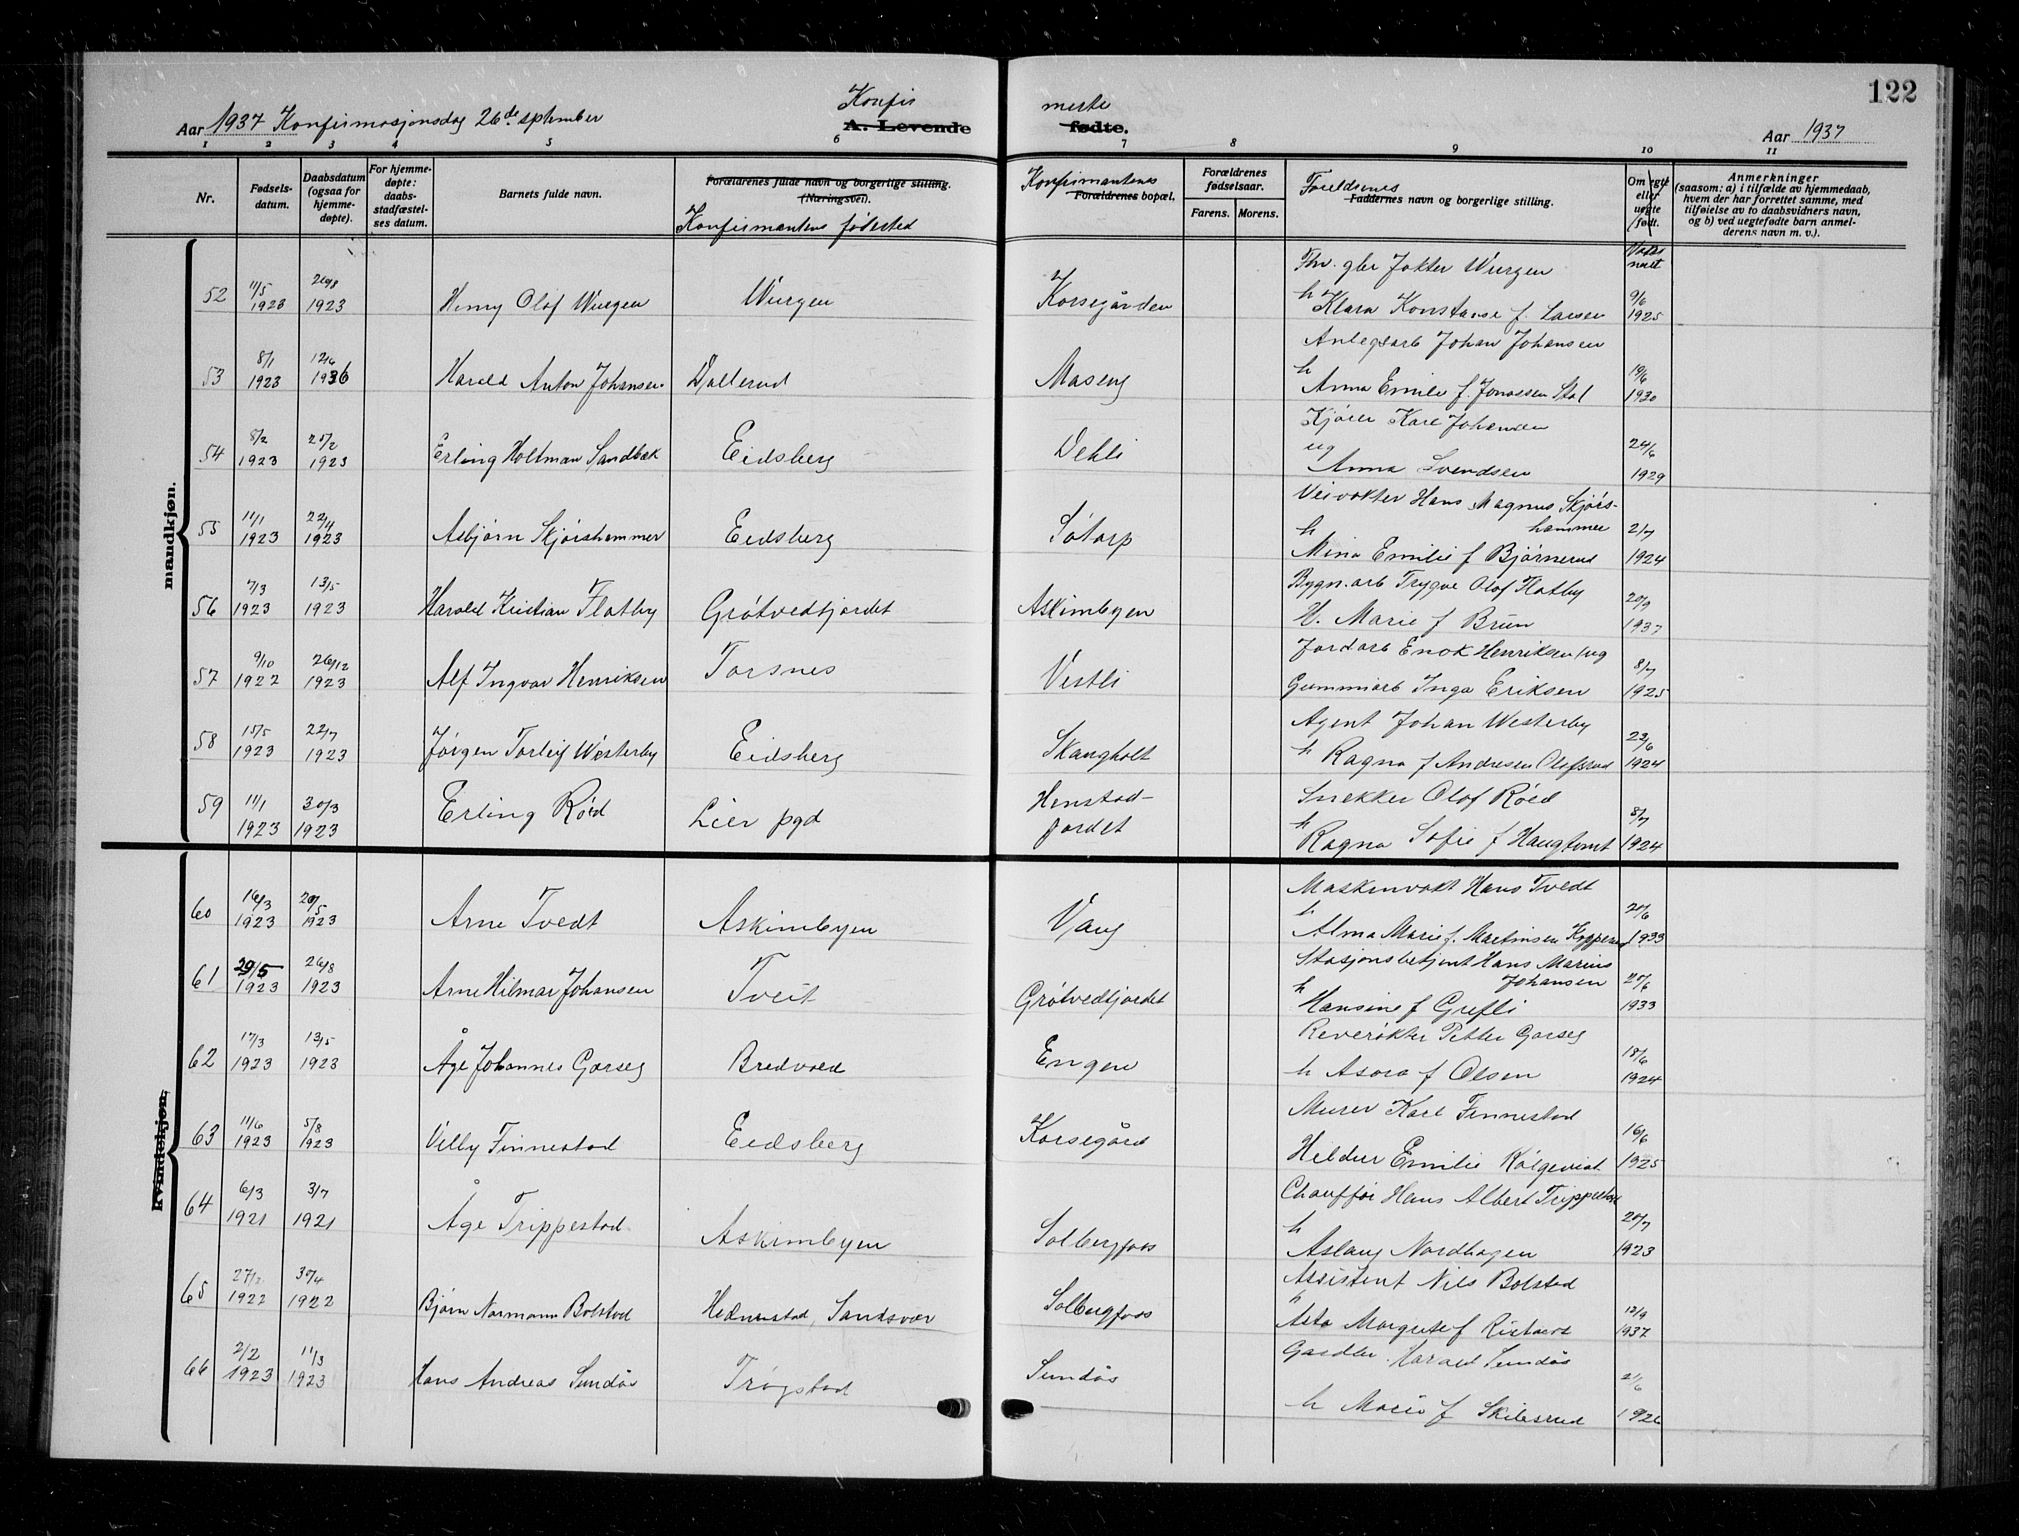 122
Aar 1937 Konfirmasjonsdag 26de september
Konfir meste
A. Levende fødte.
Aar 1937
1 2 3 4 5 6 7 8 9 10 11
Nr.
Fødsels-
datum.
Daabsdatum
(ogsaa for
hjemme-
døpte).
For hjemme-
døpte:
daabs-
stadfæstel-
ses datum.
Barnets fulde navn.
Forældrenes fulde navn og borgerlige stilling.
(Næringsvei).
Konfirmantens fødested
Konfirmantenes
Forældrenes bopæl.
Forældrenes
fødselsaar.
Farens. Morens.
Foreldrenes
Faddernes navn og borgerlige stilling.
Om egte
eller
uegte
født.
Anmerkninger
(saasom: a) i tilfælde av hjemmedaab,
hvem der har forrettet samme, med
tilføielse av to daabsvidners navn,
og b) ved uegtefødte barn anmel-
derens navn m. v.).
mandkjøn.
52 11/5 1923 20/8 1923 Henry Olaf Wurgen Wurgen Korsegården Jokter Wurgen
h Klara Konstanse f. Larsen 9/6 1925
53 8/1 1923 12/6 1936 Harald Anton Johansen Dallerud Maseng Anlegsarb Johan Johansen
h Anna Emilie f. Jonassen 19/6 1930
54 8/2 1923 25/2 1923 Erling Holtman Sandbæk Eidsberg Dehli Kjører Karl Johansen
ug Anna Svendsen 24/6 1929
55 11/1 1923 22/4 1923 Asbjørn Skjørshammer Eidsberg Søtorp Veivokter Hans Magnus Skjørs-
hammer
h Mina Emilie f Bjørnerud 2/7 1924
56 7/3 1923 13/5 1923 Harald Kristian Flatby Grøtvedtjordet Askimbyen Bygn.arb Trygve Olof Flatby
h. Marie f Brun 20/9 1937
57 9/10 1922 26/12 1923 Alf Ingvar Henriksen Torsnes Vestli Jordarb Enok Henriksen / ug
Gummiarb Inga Eriksen 8/7 1925
58 15/5 1923 22/7 1923 Jørgen Torleif Westerby Eidsberg Skaugholt Agent Johan Westerby
h Ragna f Andresen Olafsrud 23/6 1924
59 11/1 1923 30/3 1923 Erling Røed Lier pgd Henstad-
jordet Snekker Olof Røed
h Ragna Sofie f Haugtomt 8/7 1924
Kvindekjøn.
60 16/3 1923 20/5 1923 Arne Tvedt Askimbyen Vang Maskinvakt Hans Tvedt
h Alma Marie f. Martinsen 20/6 1933
61 29/5 1923 26/8 1923 Arne Hilmar Johansen Tveit Grøtvedtjordet Stasjonsbetjent Hans Marius
Johansen
h Hansine f Grefli 20/6 1933
62 17/3 1923 13/5 1923 Åge Johannes Garseg Bredvold Engen Petter Garseg
h Asora f Olsen 18/6 1924
63 11/6 1923 5/8 1923 Villy Finnestad Eidsberg Korsegård Murer Karl Finnestad
Hildur Emilie 16/6 1925
64 6/3 1921 3/7 1921 Åge Trippestad Askimbyen Solbergfoss Chauffør Hans Albert Trippestad
h Aslaug Nordhagen 20/7 1923
65 27/2 1922 30/4 1922 Bjørn Normann Bolstad Hedenstad, Sandsvær Solbergfoss Assistent Nils Bolstad
h Asta Margrete f 12/9 1937
66 2/2 1923 11/3 1923 Hans Andreas Sundås Trøgstad Sundås Gardbr. Harald Sundås
h Marie f Skibsrud 21/6 1926